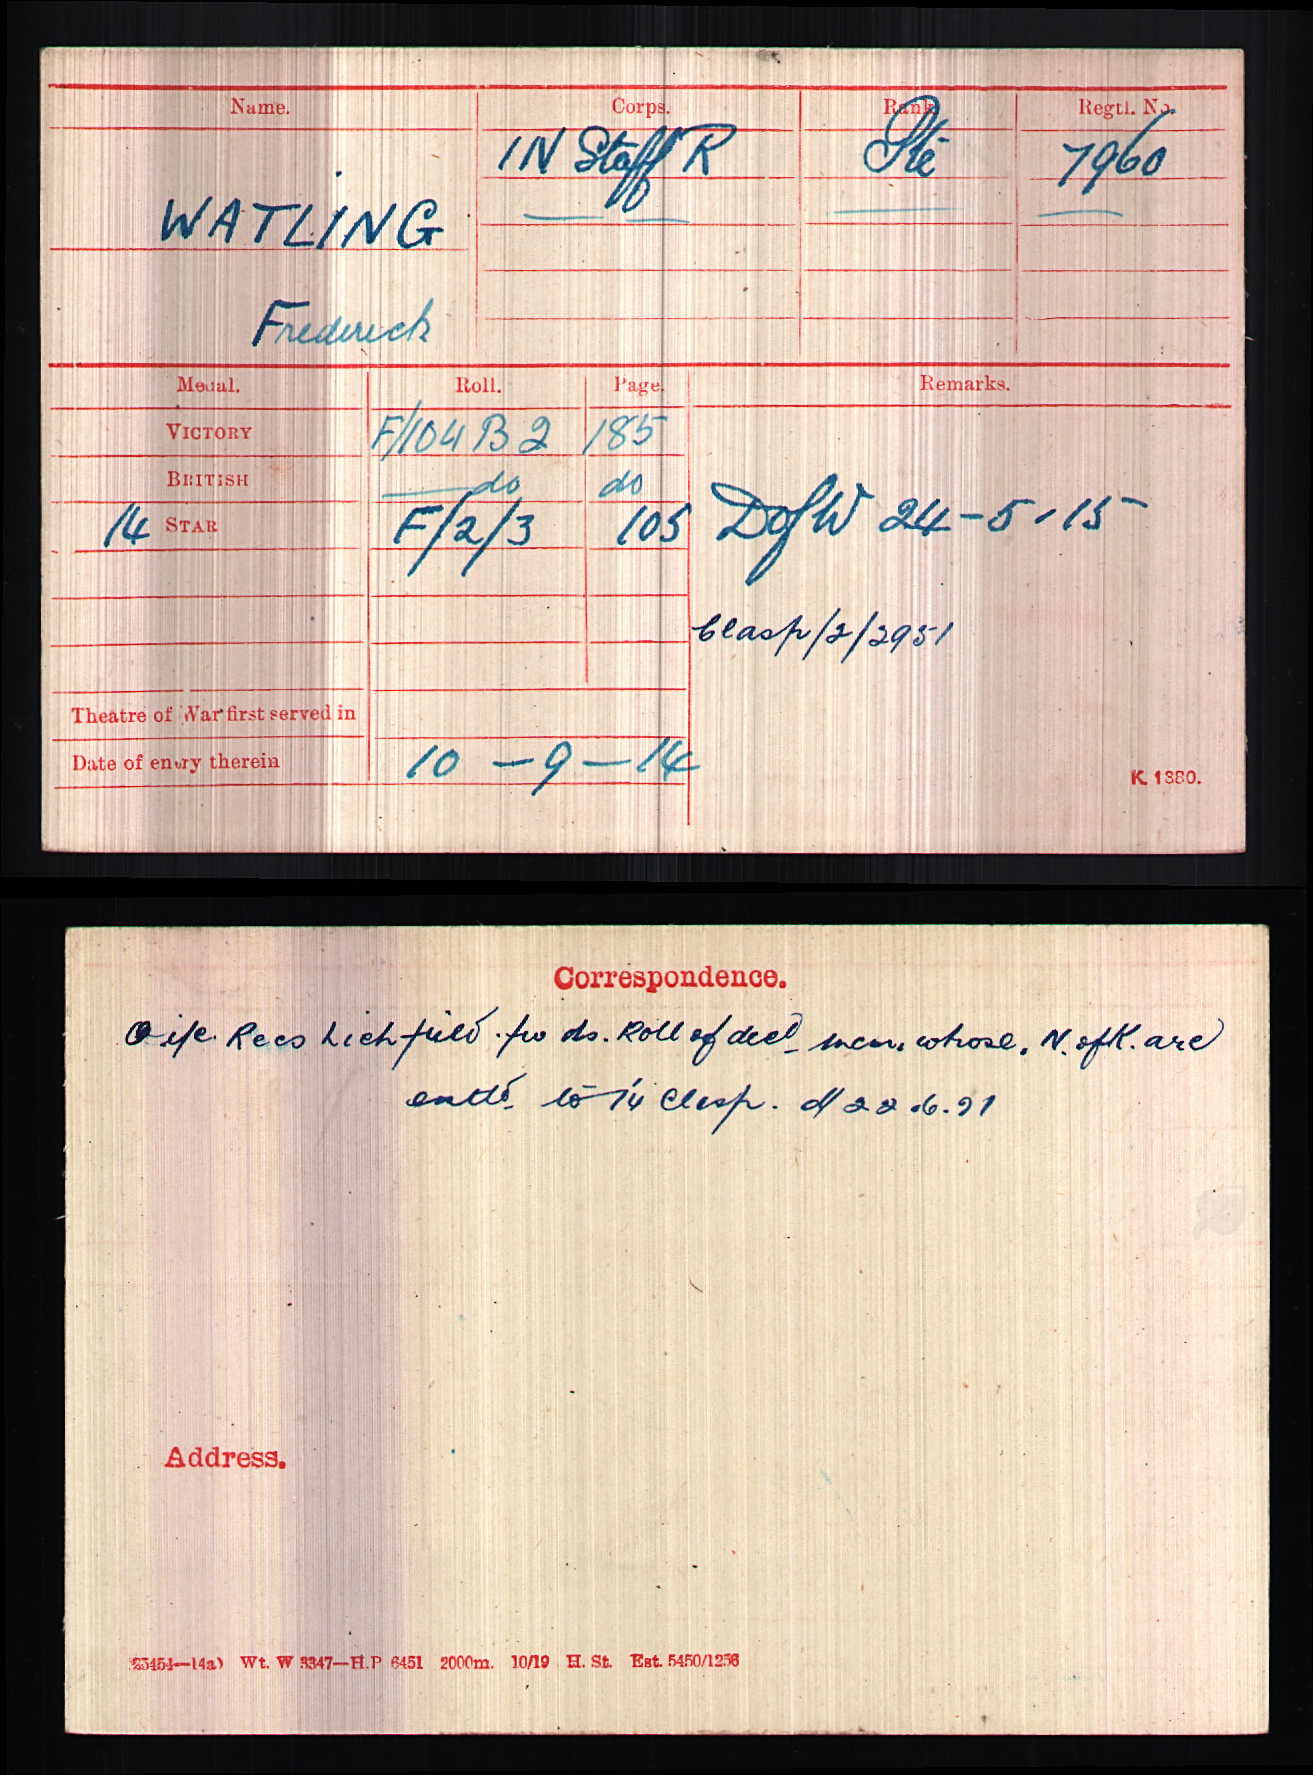 Name. Corps. Rank Regtl. No.
1 N Staff R Pte 7960
WATLING
Frederick
Medal. Roll. Page. Remarks.
VICTORY F/104 B 2 185
BRITISH do do
14 STAR F/2/3 105 DofW 24-5-15
Clasp/2/2951
Theatre of War first served in
Date of entry therein 10-9-14
K. 1380.
Correspondence.
O i/c Recs Lichfield fw ds. Roll of decd men whose N. of K. are
entld to 14 Clasp. d/ 22.6.21
Address.
Wt. W 3347—H.P 6451 2000m. 10/19 H. St. Est. 5450/1256